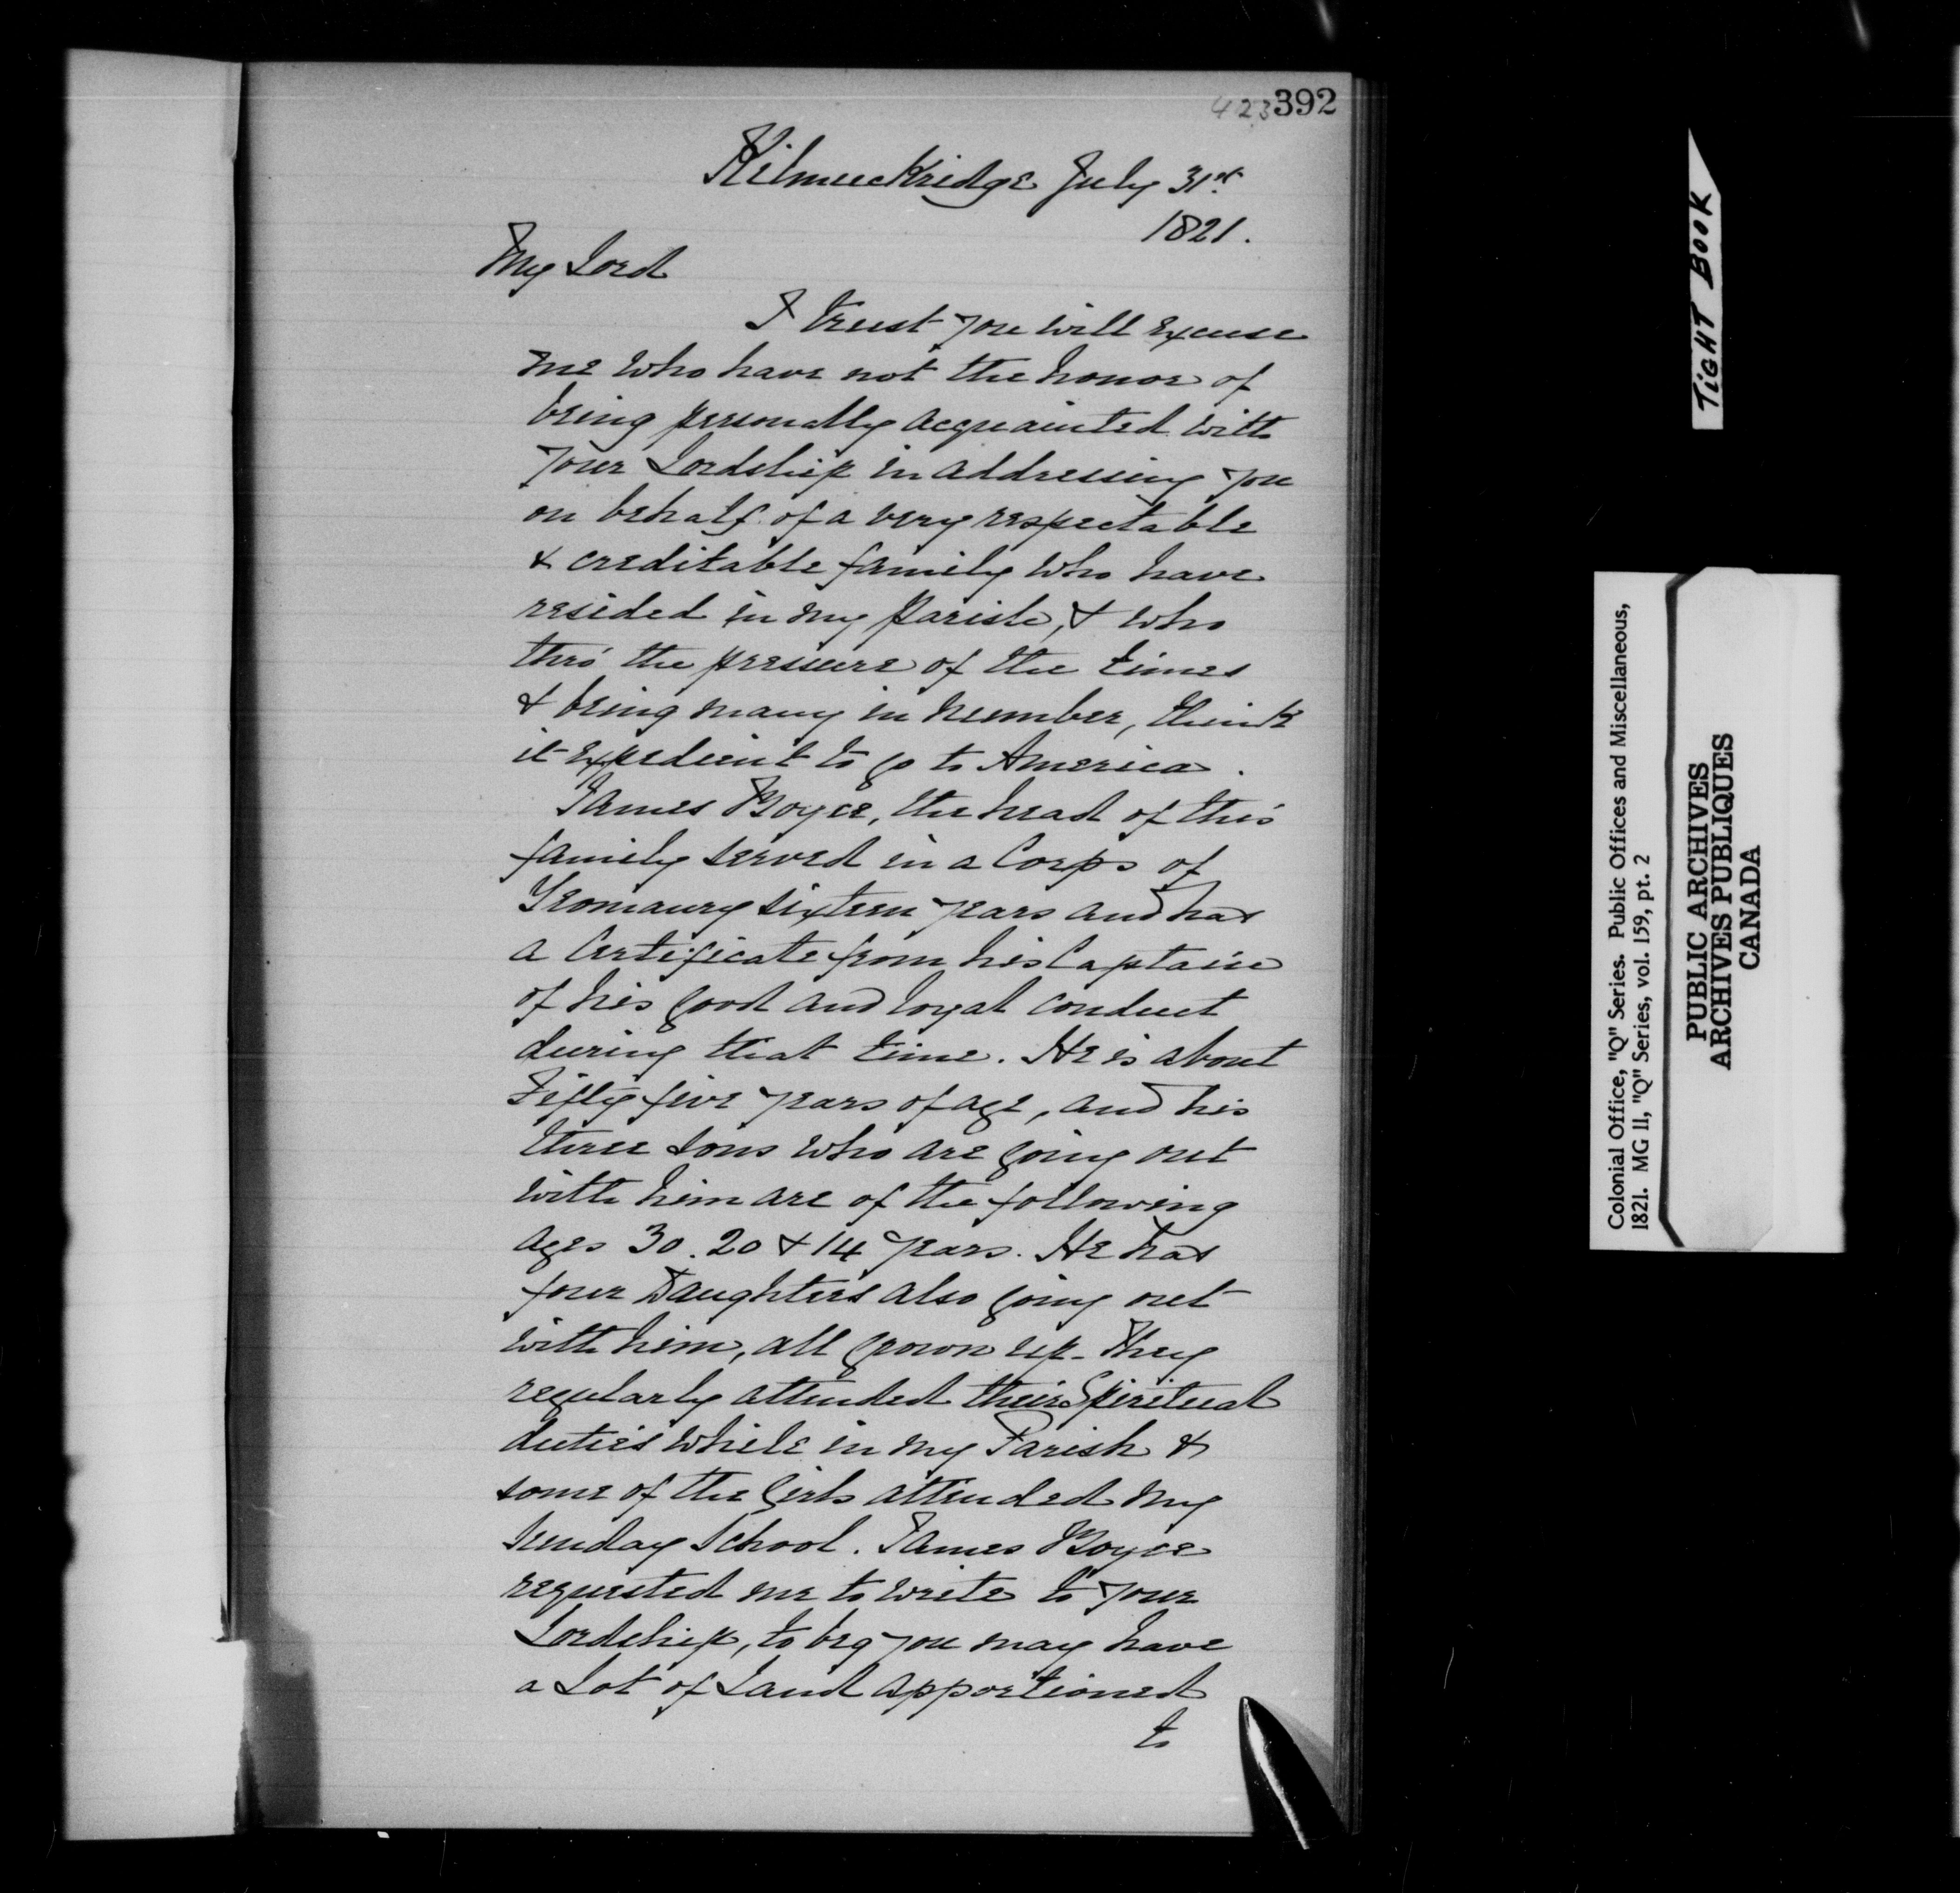 423 392
Kilmuckridge July 31st
1821.
My Lord
I trust you will excuse
me who have not the honor of
being personally acquainted with
your Lordship in addressing you
on behalf of a very respectable
& creditable family who have
resided in my parish, & who
thro' the pressure of the times
& being many in number, think
it expedient to go to America.
James Boyce, the head of this
family served in a Corps of
Yeomanry sixteen years and has
a Certificate from his Captain
of his good and loyal conduct
during that time. He is about
Fifty five years of age, and his
three sons who are going out
with him are of the following
ages 30. 20 & 14 years. He has
four Daughters also going out
with him, all grown up. They
regularly attended their Spiritual
duties while in my Parish &
some of the Girls attended my
Sunday School. James Boyce
requested me to write to your
Lordship, to beg you may have
a Lot of Land apportioned
to
TIGHT BOOK
Colonial Office, "Q" Series. Public Offices and Miscellaneous,
1821. MG 11, "Q" Series, vol. 159, pt. 2
PUBLIC ARCHIVES
ARCHIVES PUBLIQUES
CANADA